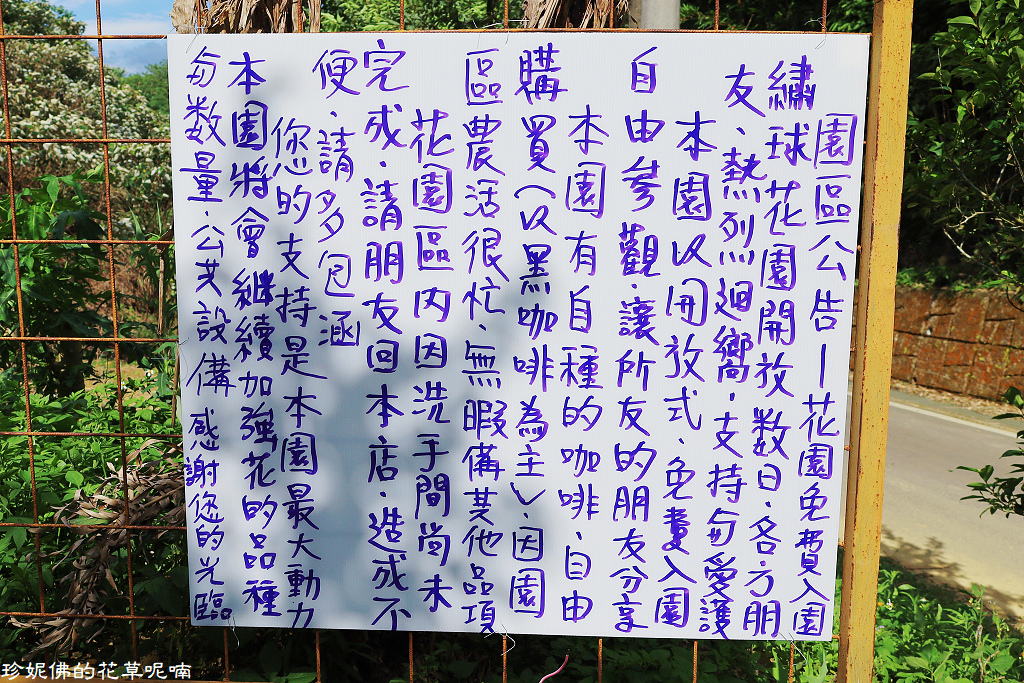 園區公告—花園免費入園
繡球花園開放数日、各方朋
友、熱烈迴嚮、支持与愛護
本園以開放式、免費入園
自由參觀、讓所友的朋友分享
本園有自種的咖啡、自由
購買(以黑咖啡為主)、因園
區農活很忙、無暇備其他品項
花園區內因洗手間尚未
完成、請朋友回本店、造成不
便、請多包涵
您的支持是本園最大動力
本園將會継續加強花的品種
与数量、公共設備感謝您的光臨
珍妮佛的花草呢喃